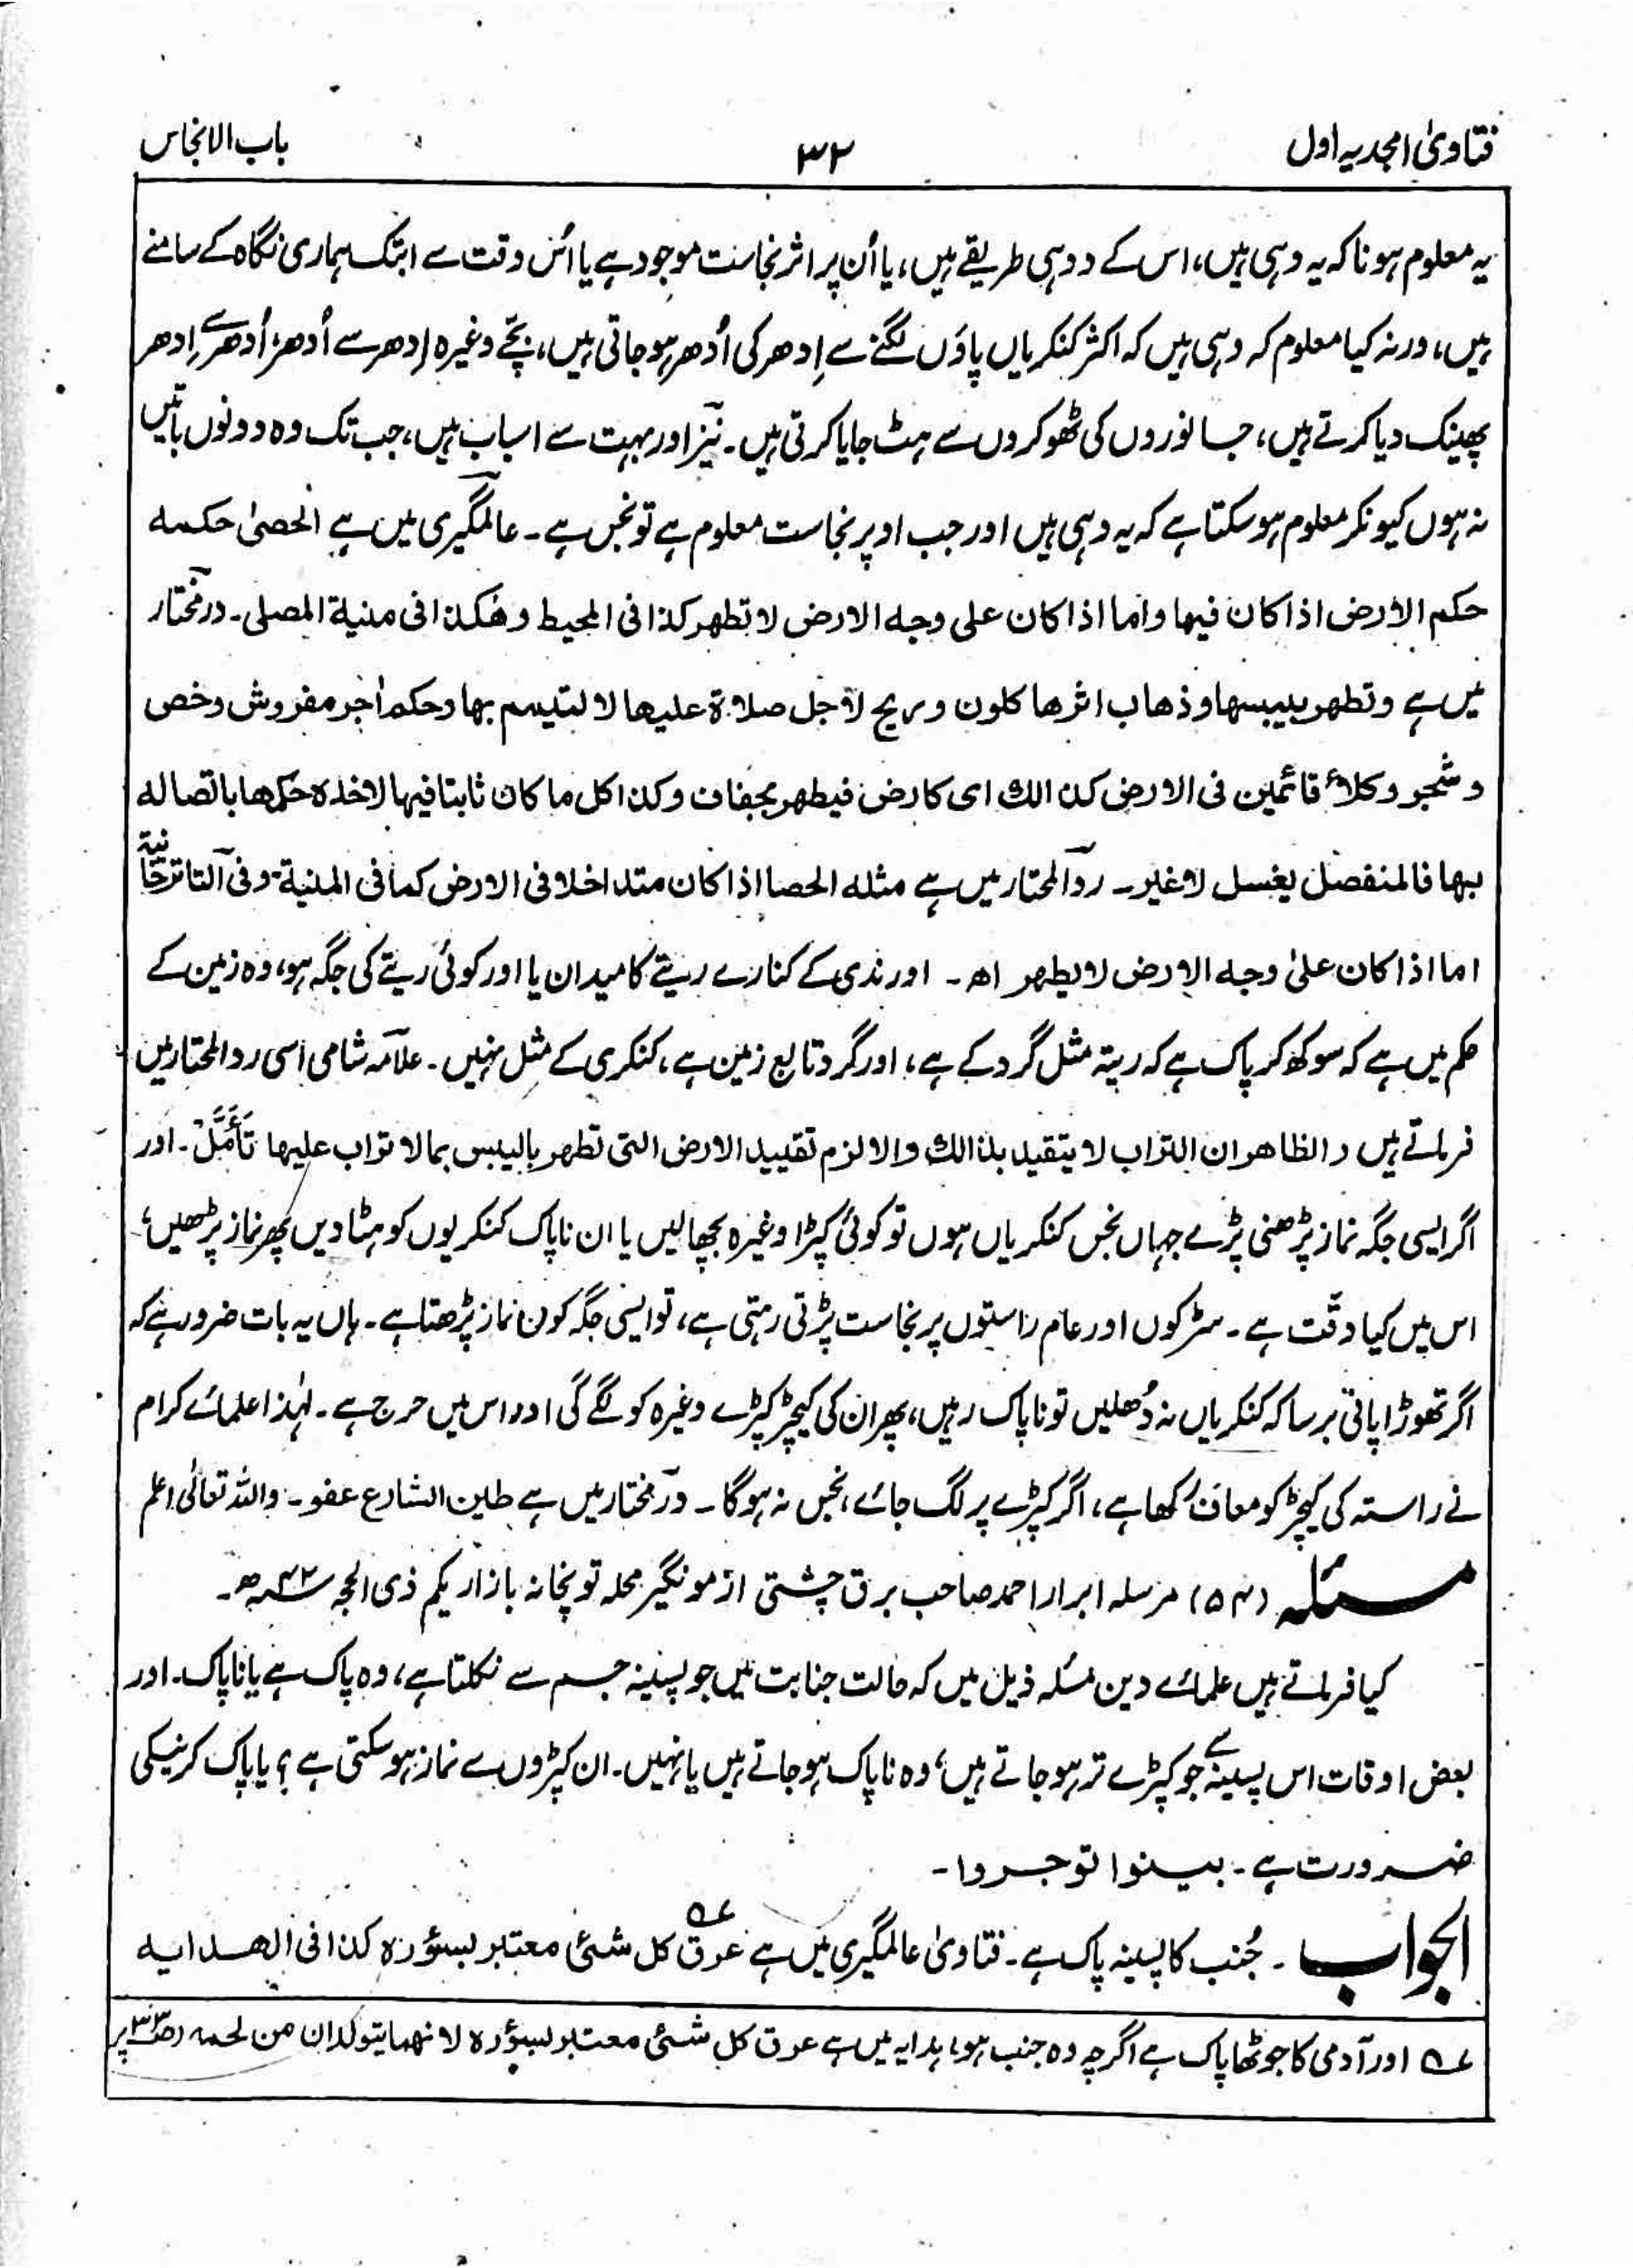 فتاویٰ امجدیہ اول
۳۲
باب الانجاس
یہ معلوم ہونا کہ یہ وہی ہیں، اس کے دو ہی طریقے ہیں، یا اُن پر اثر نجاست موجود ہے یا اُس وقت سے ابتک ہماری نگاہ کے سامنے
ہیں، ورنہ کیا معلوم کہ وہی ہیں کہ اکثر کنکریاں پاؤں لگنے سے اِدھر کی اُدھر ہو جاتی ہیں، بچّے وغیرہ اِدھر سے اُدھر، اُدھر سے اِدھر
پھینک دیا کرتے ہیں، جانوروں کی ٹھوکروں سے ہٹ جایا کرتی ہیں۔ نیز اور بہت سے اسباب ہیں، جب تک وہ دونوں باتیں
نہ ہوں کیونکر معلوم ہو سکتا ہے کہ یہ وہی ہیں اور جب اوپر نجاست معلوم ہے تو نجس ہے۔ عالمگیری میں ہے الحصیٰ حکمہ
حکم الارض اذا کان فیھا واما اذا کان علی وجہ الارض لا تطھر کذا فی المحیط وھٰکذا فی منیۃ المصلی۔ درمختار
میں ہے وتطھر بیبسھا وذھاب اثرھا کلون وریح لاجل صلاۃ علیھا لا لتیمم بھا وحکم آجر مفروش وخص
وشجر وکلاء قائمین فی الارض کذالک ای کارض فیطھر بجفاف وکذا کل ما کان ثابتا فیھا لاخذہ حکمھا باتصالہ
بھا فالمنفصل یغسل لا غیر۔ ردالمحتار میں ہے مثلہ الحصا اذا کان متداخلا فی الارض کما فی المنیۃ۔ وفی التاترخانیۃ
اما اذا کان علیٰ وجہ الارض لا یطھر اھ۔ اور ندی کے کنارے ریتے کا میدان یا اور کوئی ریتے کی جگہ ہو، وہ زمین کے
حکم میں ہے کہ سوکھ کر پاک ہے کہ ریتہ مثل گرد کے ہے، اور گرد تابع زمین ہے، کنکری کے مثل نہیں۔ علامہ شامی اسی ردالمحتار میں
فرماتے ہیں والظاھر ان التراب لا یتقید بذالک والا لزم تقیید الارض التی تطھر بالیبس بما لا تراب علیھا تَأَمَّلْ۔ اور
اگر ایسی جگہ نماز پڑھنی پڑے جہاں نجس کنکریاں ہوں تو کوئی کپڑا وغیرہ بچھالیں یا ان ناپاک کنکریوں کو ہٹا دیں پھر نماز پڑھیں،
اس میں کیا دقّت ہے۔ سڑکوں اور عام راستوں پر نجاست پڑتی رہتی ہے، تو ایسی جگہ کون نماز پڑھتا ہے۔ ہاں یہ بات ضرور ہے کہ
اگر تھوڑا پانی برسا کہ کنکریاں نہ دُھلیں تو ناپاک رہیں، پھر ان کی کیچڑ کپڑے وغیرہ کو لگے گی اور اس میں حرج ہے۔ لہٰذا علمائے کرام
نے راستہ کی کیچڑ کو معاف رکھا ہے، اگر کپڑے پر لگ جائے، نجس نہ ہوگا۔ درمختار میں ہے طین الشارع عفو۔ واللہ تعالیٰ اعلم
مسئلہ (۵۴) مرسلہ ابرار احمد صاحب برق چشتی از مونگیر محلہ توپخانہ بازار یکم ذی الحجہ ۴۲ھ۔
کیا فرماتے ہیں علمائے دین مسئلہ ذیل میں کہ حالت جنابت میں جو پسینہ جسم سے نکلتا ہے، وہ پاک ہے یا ناپاک۔ اور
بعض اوقات اس پسینہ سے جو کپڑے تر ہو جاتے ہیں، وہ ناپاک ہو جاتے ہیں یا نہیں۔ ان کپڑوں سے نماز ہو سکتی ہے؟ یا پاک کرنیکی
ضرورت ہے۔ بینوا توجروا۔
الجواب۔ جُنب کا پسینہ پاک ہے۔ فتاویٰ عالمگیری میں ہے عرق کل شئ معتبر بسؤرہ کذا فی الھدایہ
اور آدمی کا جوٹھا پاک ہے اگرچہ وہ جنب ہو، ہدایہ میں ہے عرق کل شئ معتبر بسؤرہ لانھما یتولدان من لحمہ (ص۳۳ پر